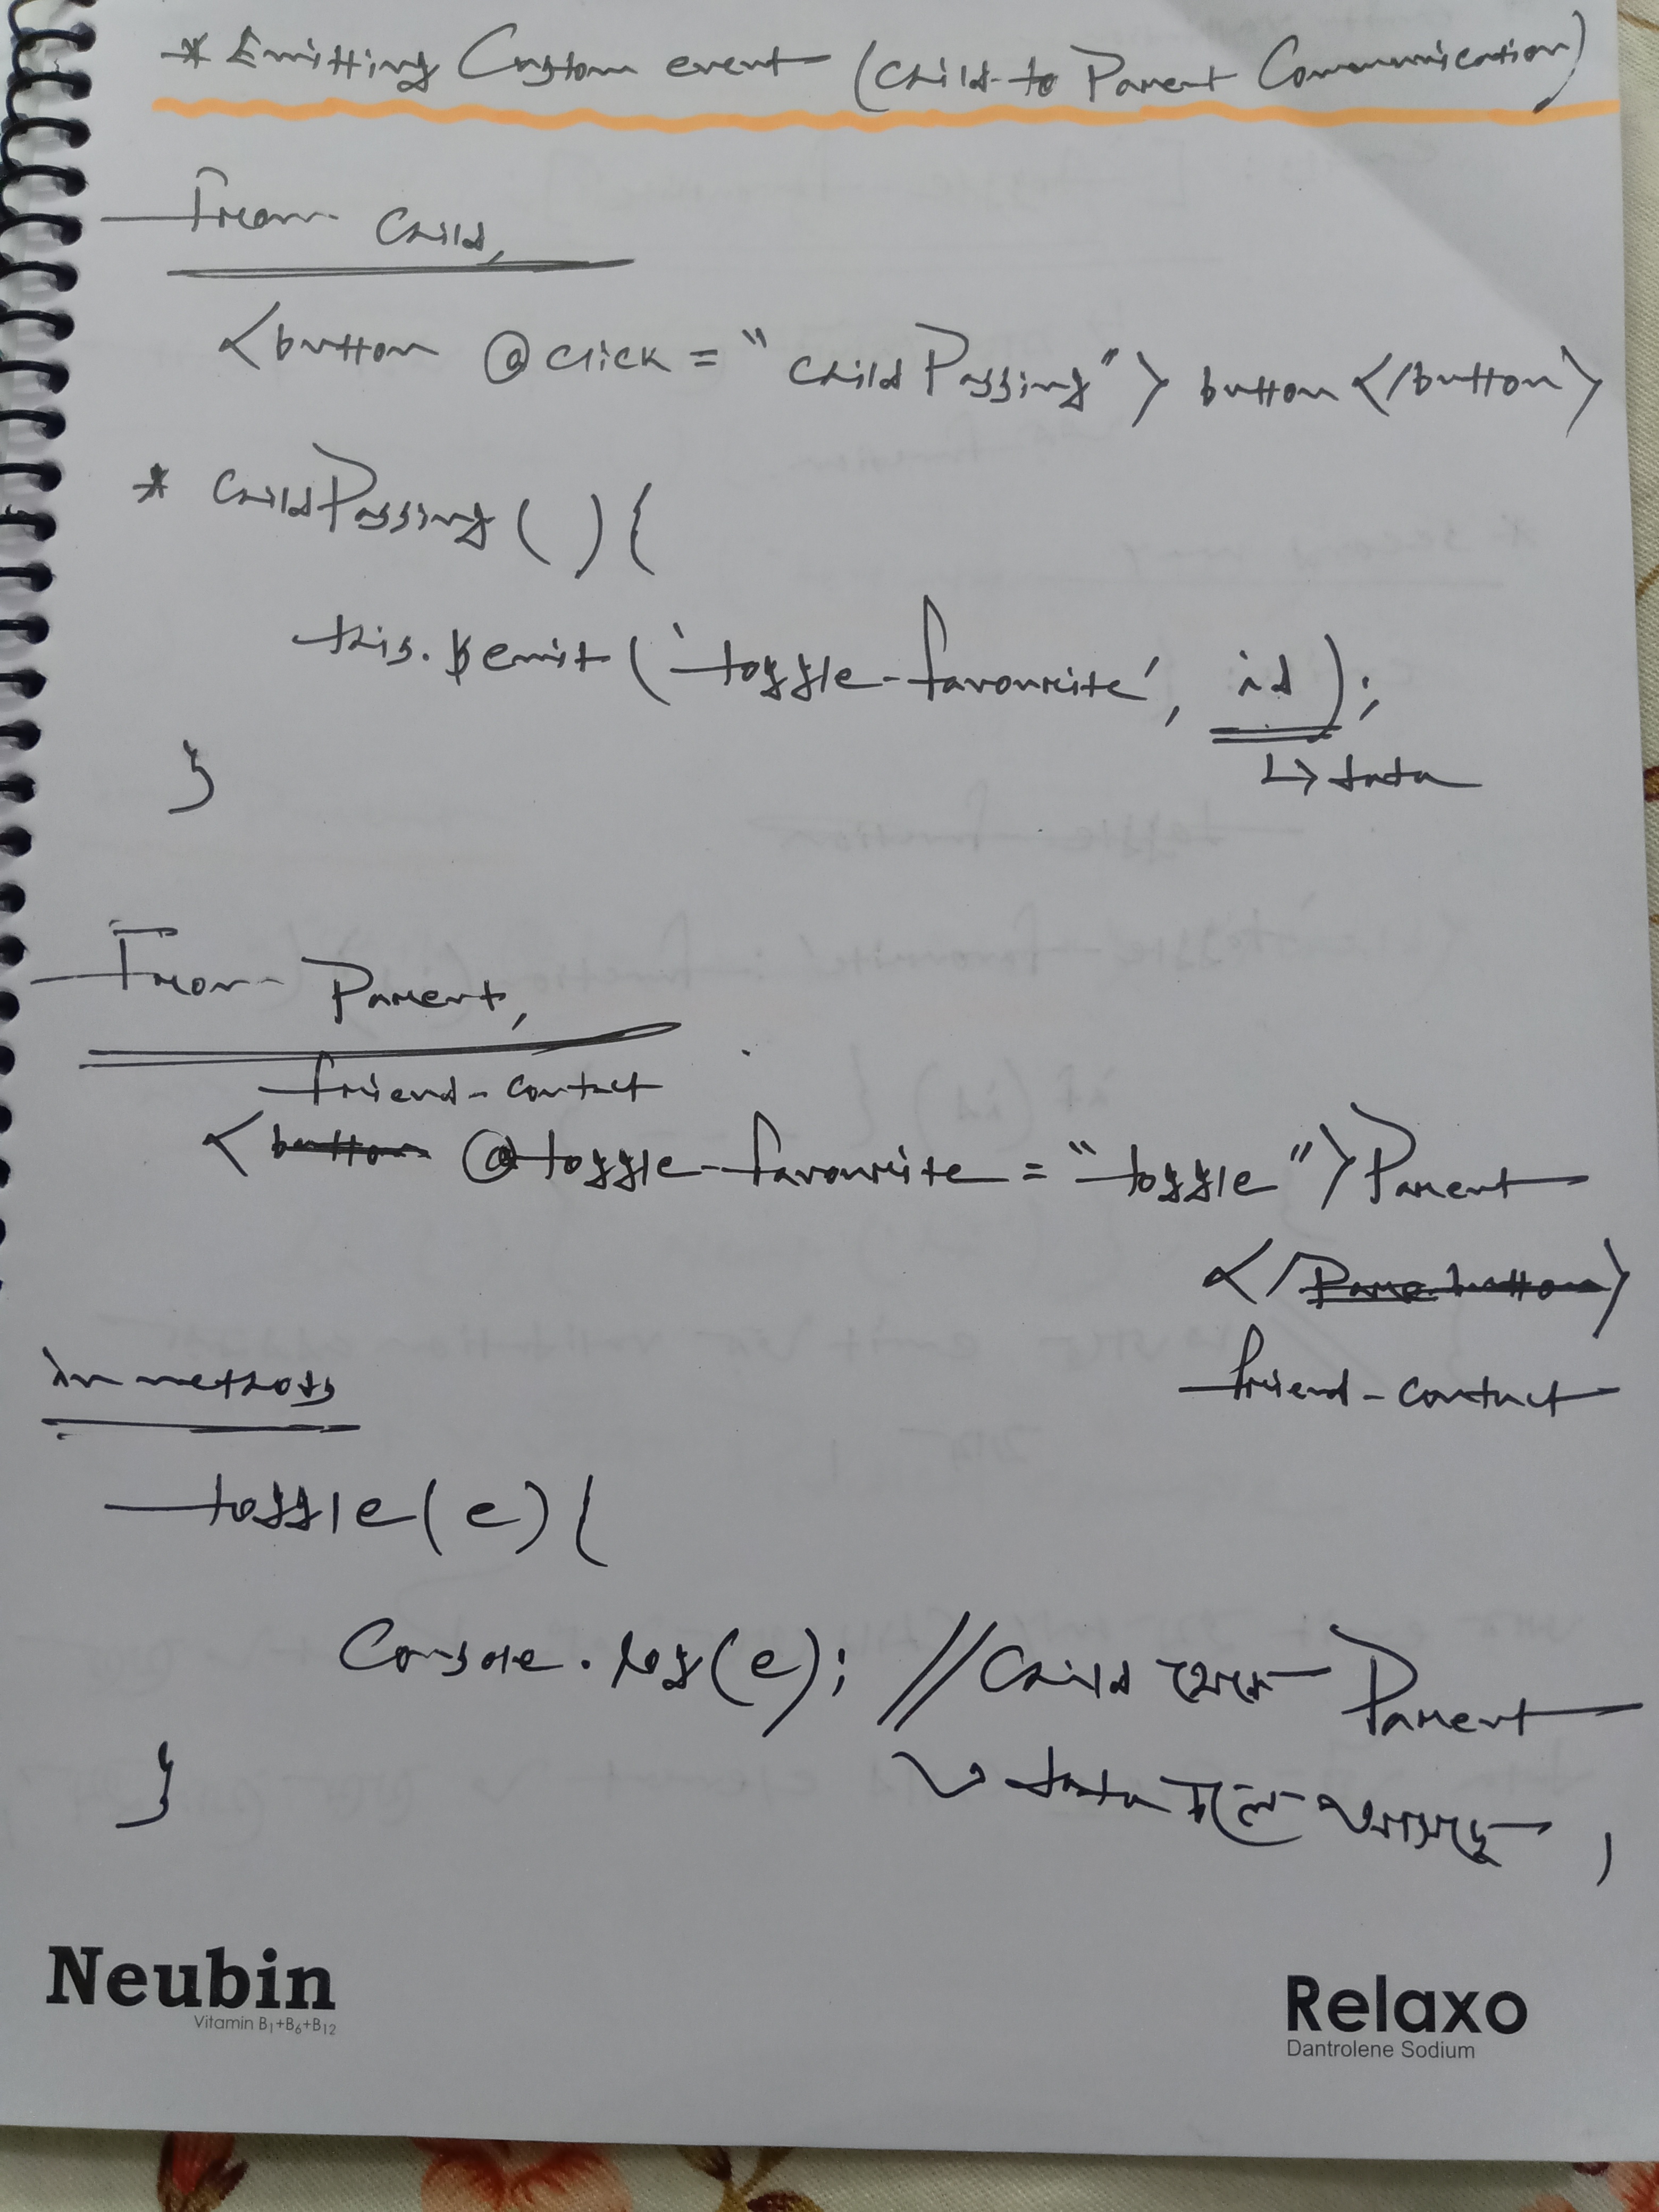 * Emitting Custom event (Child to Parent Communication)
From Child,
<button @click = "childPassing"> button </button>
* childPassing ( ) {
this.$emit ('toggle-favourite', id);
↳ data
}
From Parent,
friend-contact
< @toggle-favourite = "toggle"> Parent
</ >
friend-contact
in methods
toggle(e) {
Console.log(e); // Child থেকে Parent
↳ data চলে আসছে,
}
Neubin
Vitamin B1+B6+B12
Relaxo
Dantrolene Sodium